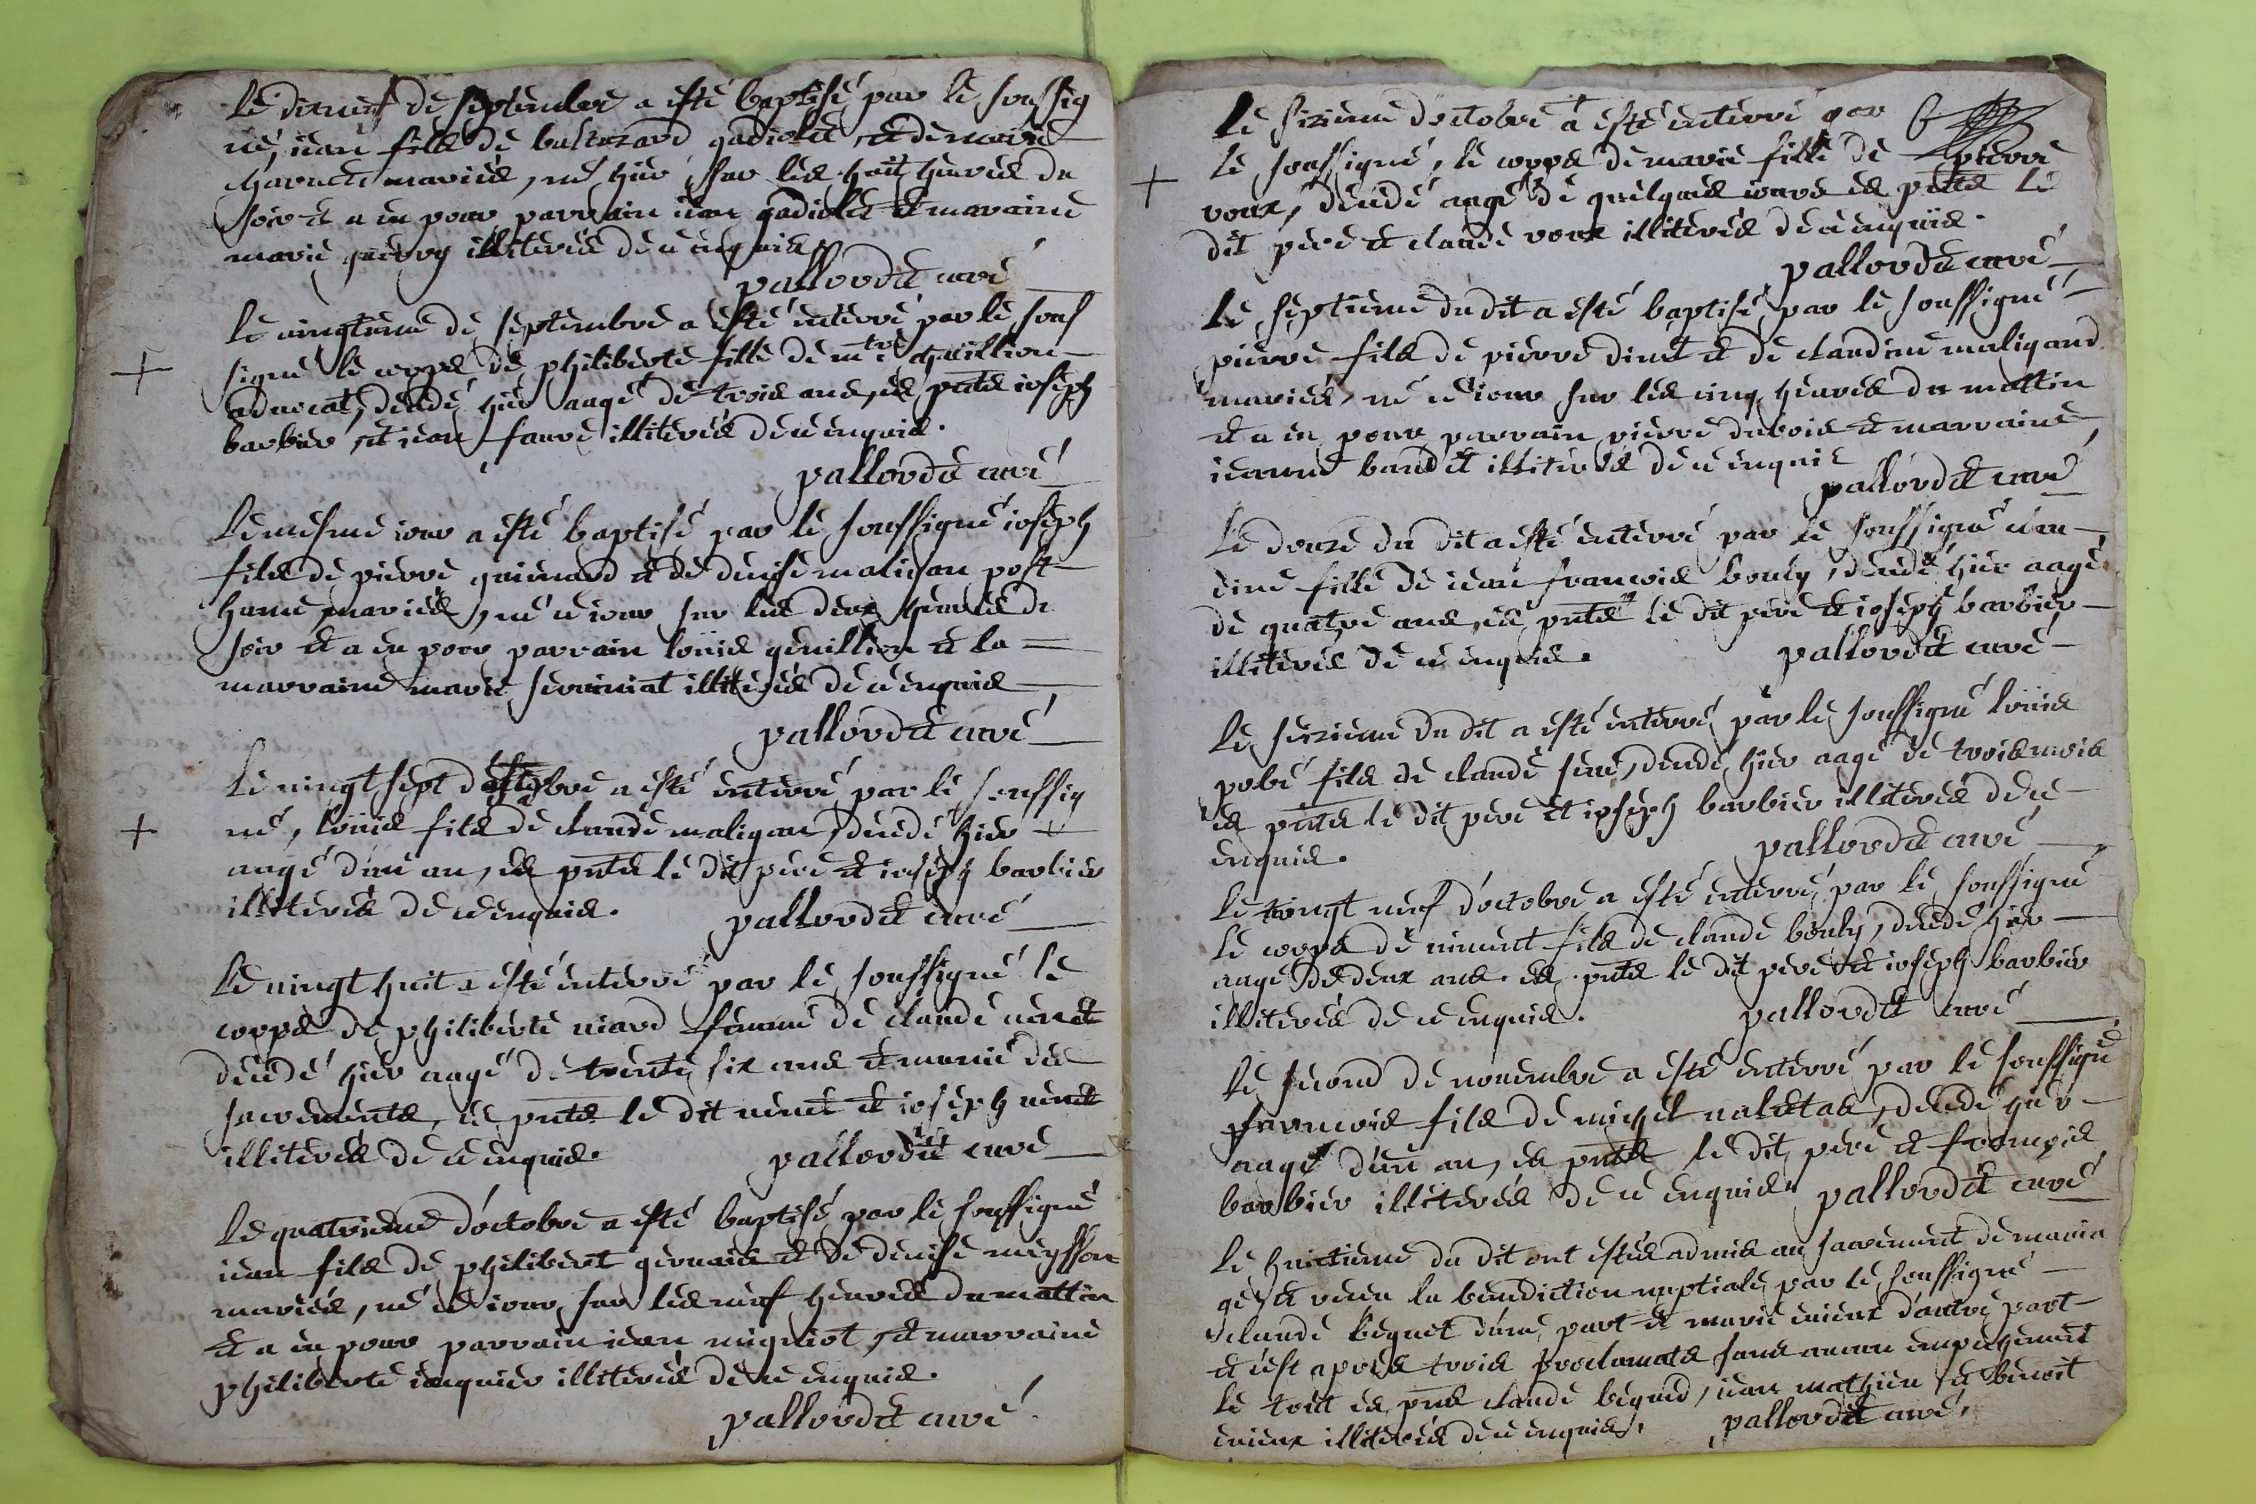 Le dixneuf de septembre a esté baptisé par le soussig
né, iean fils de baltazard gadiolet, et de marie
mariés, né hier sur les huit heures du
soir et a eu pour parrain iean gadiolet et maraine
marie guerry illiterés de ce enquis
pallordet curé
Le vingtieme de septembre a esté enterré par le sous
signé le corps de philiberte fille de mtre guillion
advocat, decedé hier aagé de trois ans, es pntes ioseph
barbier, et iean faure illiterés de ce enquis.
pallordet curé
Le mesme iour a esté baptisé par le soussigné ioseph
fils de pierre guienard et de denise maligan post
hume, mariés, né ce iour sur les deux heures du
soir et a eu pour parrain loüis guillion et la
marraine marie illiterés de ce enquis
pallordet curé
Le vingt sept de septembre a esté enterré par le soussig
né, loüis fils de claude maligan, decedé hier
aagé d'un an, es pntes le dit pere et ioseph barbier
illiterés de ce enquis.
pallordet curé
Le vingt huit a esté enterré par le soussigné le
corps de philiberte niard femme de claude nenet
decedé hier aagé de trente six ans et munie des
sacrements, es pntes le dit nenet et ioseph nenet
illiterés de ce enquis.
pallordet curé
Le quatrieme d'octobre a esté baptisé par le soussigné
iean fils de philibert gervais et de denise meysson
mariés, né ce iour sur les neuf heures du mattin
et a eu pour parrain iean migniot, et marraine
philiberte iaquier illiterés de ce enquis.
pallordet curé
Le sixieme d'octobre a esté enterré par
le soussigné, le corps de marie fille de pierre
roux, decedé aagé de quelques iours es pntes le
dit pere et claude roux illiterés de ce enquis.
pallordet curé
Le septieme du dit a esté baptisé par le soussigné
pierre fils de pierre dinet et de claudine maligand
mariés, né ce iour sur les cinq heures du mattin
et a eu pour parrain pierre dubois et marraine
ieanne baudet illiterés de ce enquis
pallordet curé
Le douze du dit a esté enterré par le soussigné clau
dine fille de iean francois bouly, decedé hier aagé
de quatre ans, es pntes le dit pere et ioseph barbier
illiterés de ce enquis.
pallordet curé
Le seizieme du dit a esté enterré par le soussigné loüis
fils de claude decedé hier aagé de trois mois
es pntes le dit pere et ioseph barbier illiterés de ce
enquis.
pallordet curé
Le vingt neuf d'octobre a esté enterré par le soussigné
le corps de vincent fils de claude bouly, decedé hier
aagé de deux ans. es pntes le dit pere et ioseph barbier
illiterés de ce enquis.
pallordet curé
Le second de novembre a esté enterré par le soussigné
francois fils de michel decedé hier
aagé d'un an, es pntes le dit pere et francois
barbier illiterés de ce enquis
pallordet curé
Le huictieme du dit ont estés admis au sacrement de maria
ge et receu la benediction nuptiale par le soussigné
claude beguet d'une part et marie d'autre part
et c'est apres trois proclamats sans aucun empechement
le tout es pns claude begued, iean mathieu et benoit
illiterés de ce enquis.
pallordet curé.